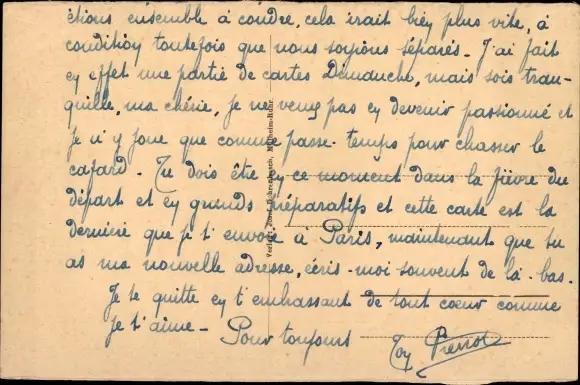 étions ensemble à coudre, cela irait bien plus vite, à
condition toutefois que nous soyions séparés - J'ai fait
en effet une partie de cartes Dimanche, mais sois tran-
quille, ma chérie, je ne veux pas en devenir passionné et
je n'y joue que comme passe-temps pour chasser le
cafard - Tu dois être en ce moment dans la fièvre du
départ et en grands préparatifs et cette carte est la
dernière que je t'envoie à Paris, maintenant que tu
as ma nouvelle adresse, écris-moi souvent de là-bas.
Je te quitte en t'embrassant de tout coeur comme
je t'aime - Pour toujours
Ton Pierrot
Mülheim-Ruhr